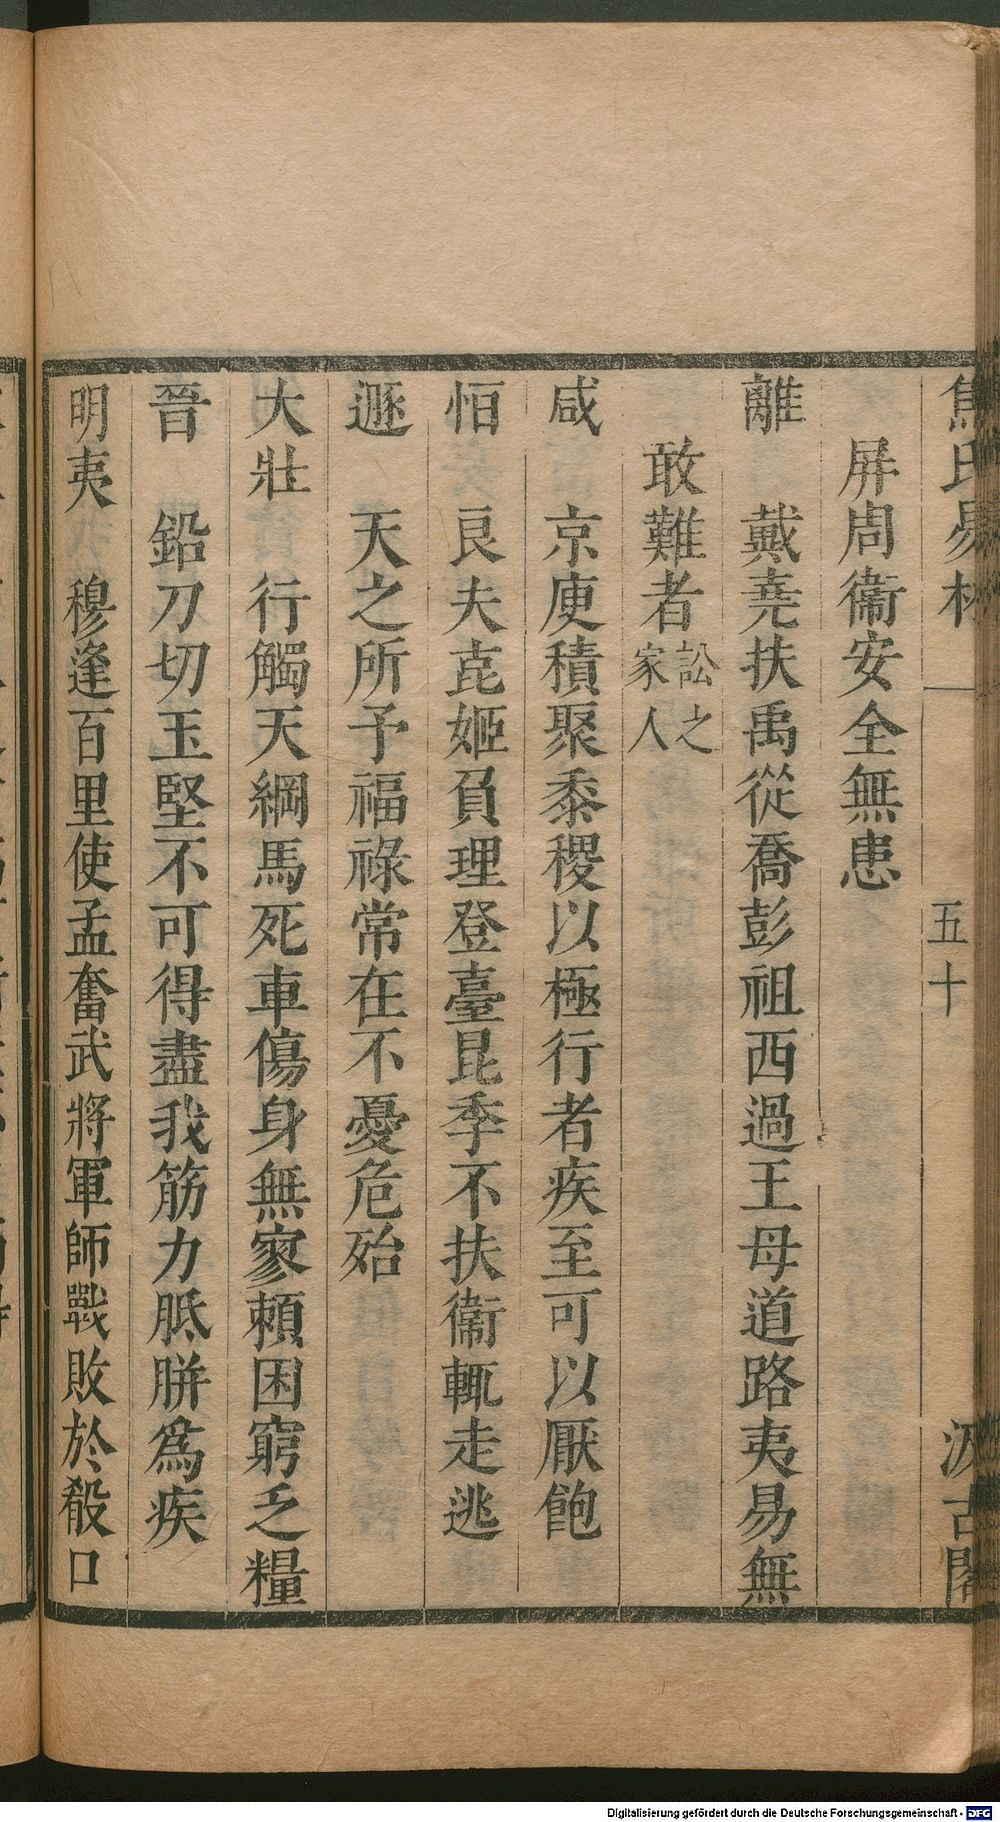 焦氏易林
五十
汲古閣
屏周衞安全無患
離 戴堯扶禹從喬彭祖西過王母道路夷易無
敢難者訟之家人
咸 京庾積聚黍稷以極行者疾至可以厭飽
恒 良夫孔姬負理登臺昆季不扶衞輒走逃
遯 天之所予福祿常在不憂危殆
大壯 行觸天綱馬死車傷身無寥賴困窮乏糧
晉 鉛刀切玉堅不可得盡我筋力胝胼爲疾
明夷 穆逢百里使孟奮武將軍師戰敗於殽口
Digitalisierung gefördert durch die Deutsche Forschungsgemeinschaft - DFG